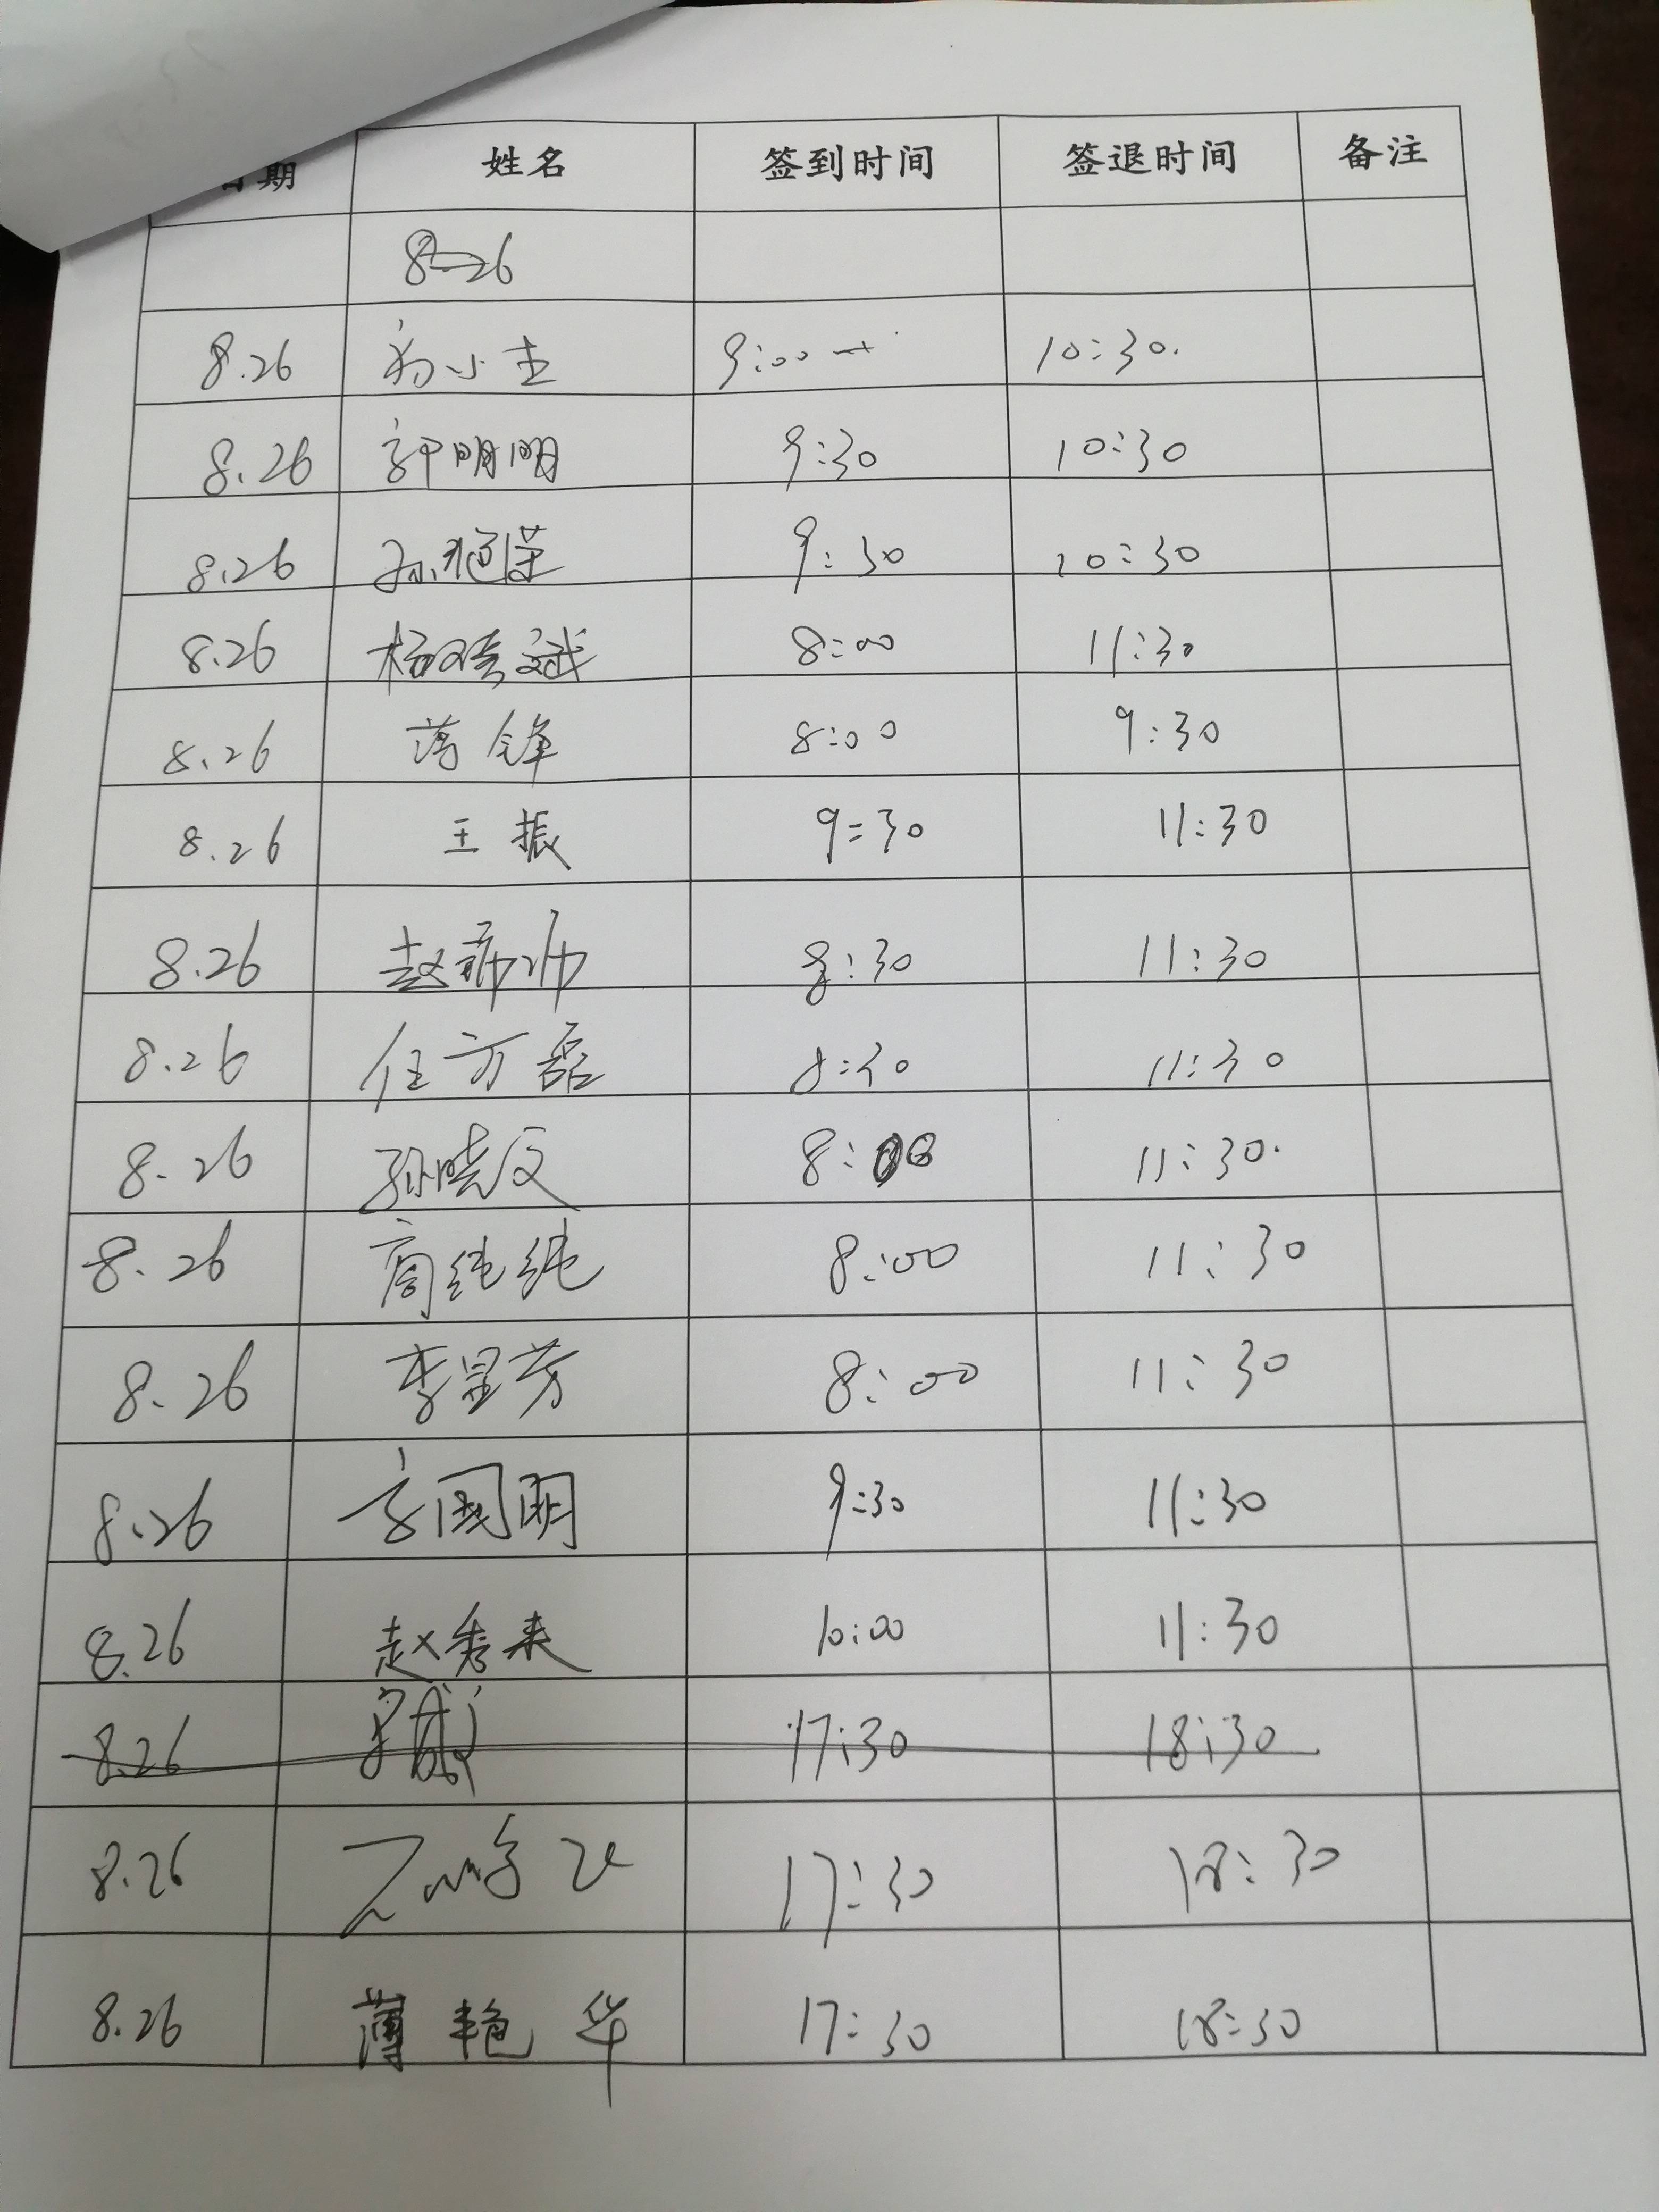 期 姓名 签到时间 签退时间 备注
8-26
8.26 小 9:00 10:30.
8.26 郭明明 9:30 10:30
8.26 孙 9:30 10:30
8.26 杨晓斌 8:00 11:30
8.26 蒋锋 8:00 9:30
8.26 王振 9:30 11:30
8.26 赵帅帅 8:30 11:30
8.26 任方磊 8:30 11:30
8.26 孙晓文 8:00 11:30.
8.26 高纯纯 8:00 11:30
8.26 李显芳 8:00 11:30
8.26 国明 9:30 11:30
8.26 赵秀来 10:00 11:30
8.26 17:30 18:30
8.26 17:30 18:30
8.26 薄艳华 17:30 18:30